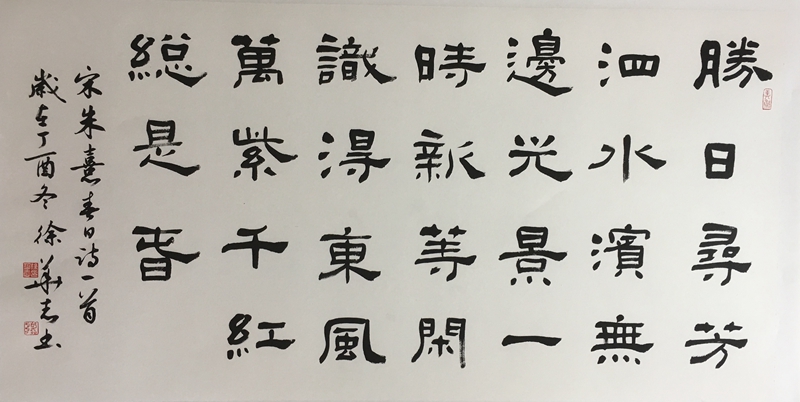 勝日尋芳
泗水濱無
邊光景一
時新等閑
識得東風
萬紫千紅
總是春
宋朱熹春日詩一首
歲在丁酉冬徐華志书